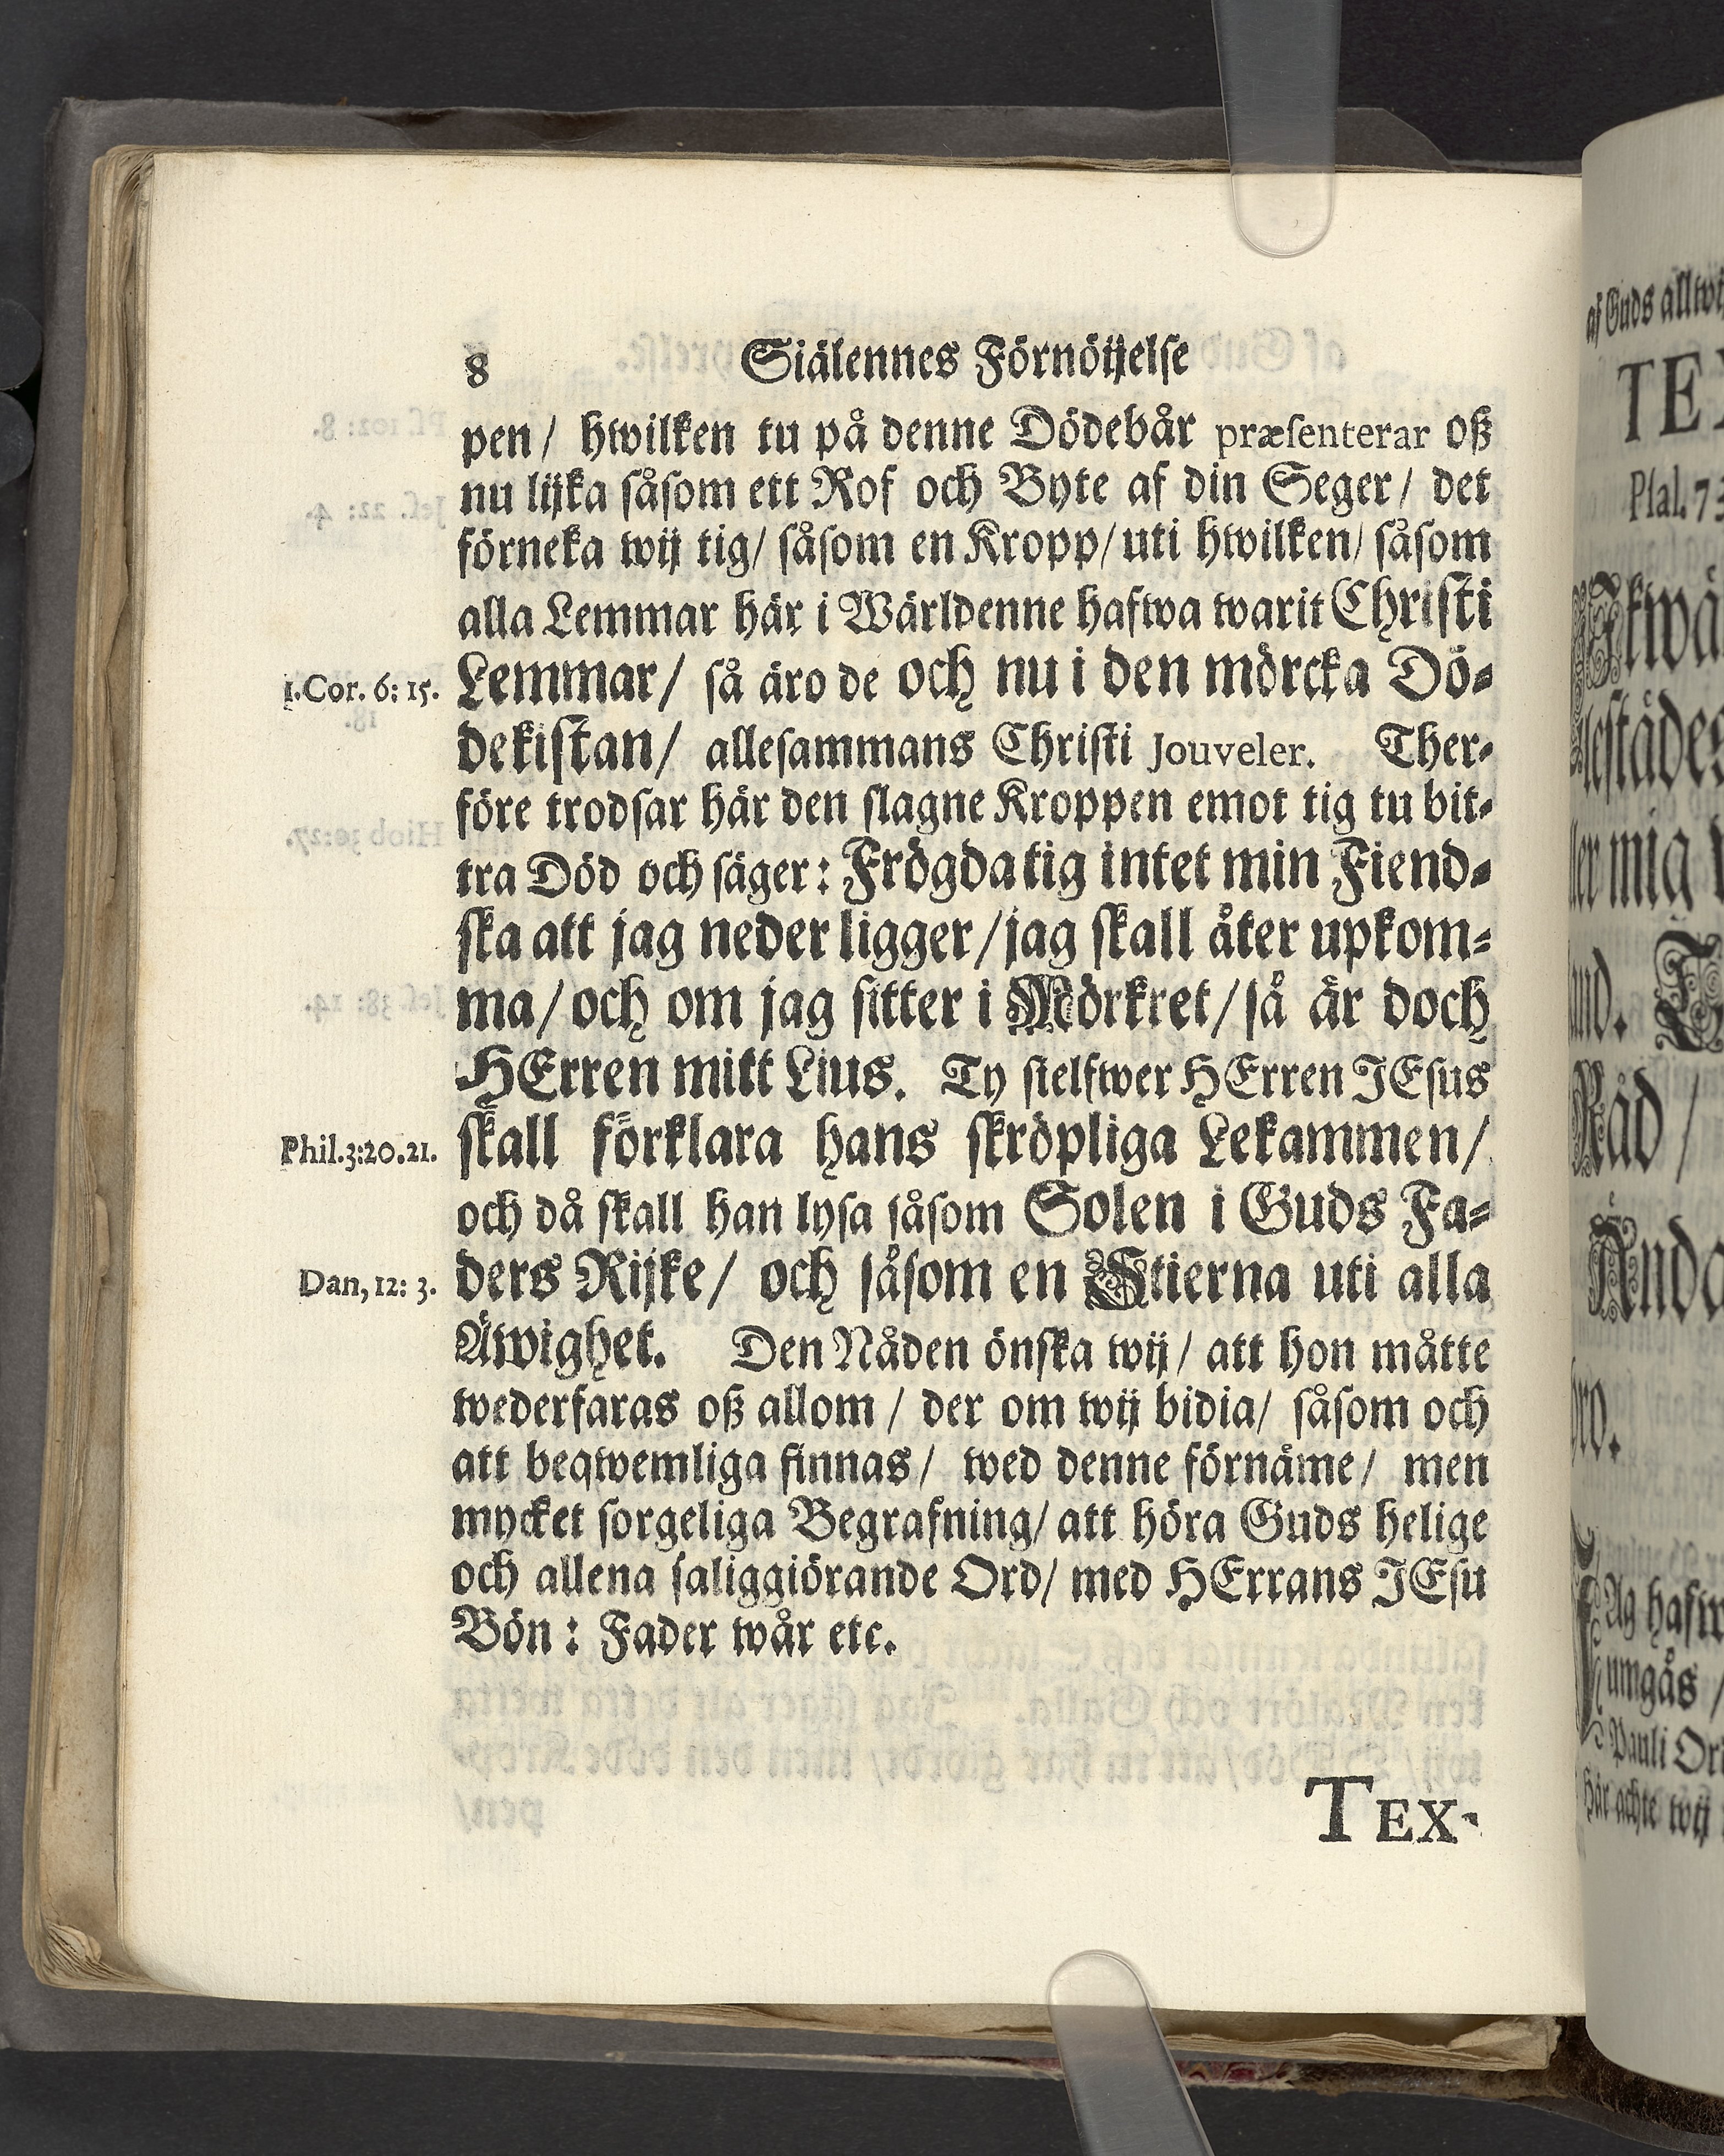 8 Siälennes Förnöijelse
pen/ hwilken tu på denne Dödebår præsenterar oß
nu lijka såsom ett Rof och Byte af din Seger/ det
förneka wij tig/ såsom en Kropp/ uti hwilken/ såsom
alla Lemmar här i Wärldenne hafwa warit Christi
1.Cor. 6: 15. Lemmar/ så äro de och nu i den mörcka Dö-
dekistan/ allesammans Christi Jouveler. Ther-
före trodsar här den slagne Kroppen emot tig tu bit-
tra Död och säger: Frögda tig intet min Fiend-
ska att jag neder ligger/ jag skall åter upkom-
ma/ och om jag sitter i Mörkret/ så är doch
HErren mitt Lius. Ty sielfwer HErren JEsus
Phil.3:20.21. skall förklara hans skröpliga Lekammen/
och då skall han lysa såsom Solen i Guds Fa-
Dan, 12: 3. ders Rijke/ och såsom en Stierna uti alla
Äwighet. Den Nåden önska wij/ att hon måtte
wederfaras oß allom/ der om wij bidia/ såsom och
att beqwemliga finnas/ wed denne förnäme/ men
mycket sorgeliga Begrafning/ att höra Guds helige
och allena saliggiörande Ord/ med HErrans JEsu
Bön: Fader wår etc.
TEX-
af Guds allwi
TEX
Psal. 73
lestädes
ler mig
Råd/
Ag hafw
umgås/
Pauli Ord
här achte wij